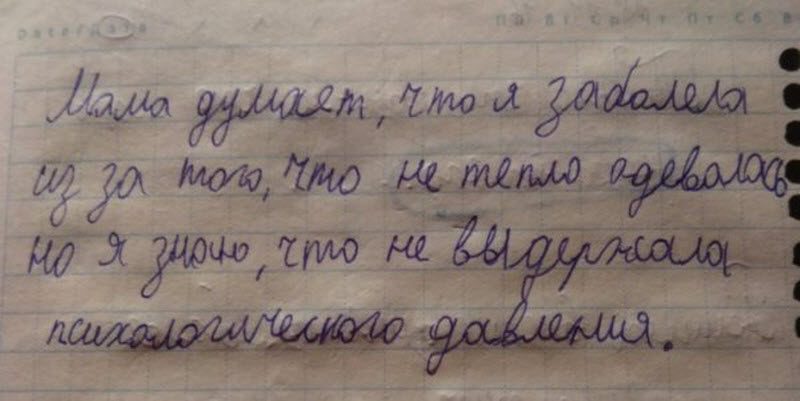 Date/Дата Пв Вт Ср Чт Пт Сб В
Мама думает, что я заболела
из за того, что не тепло одевалась
но я знаю, что не выдержала
психологического давления.